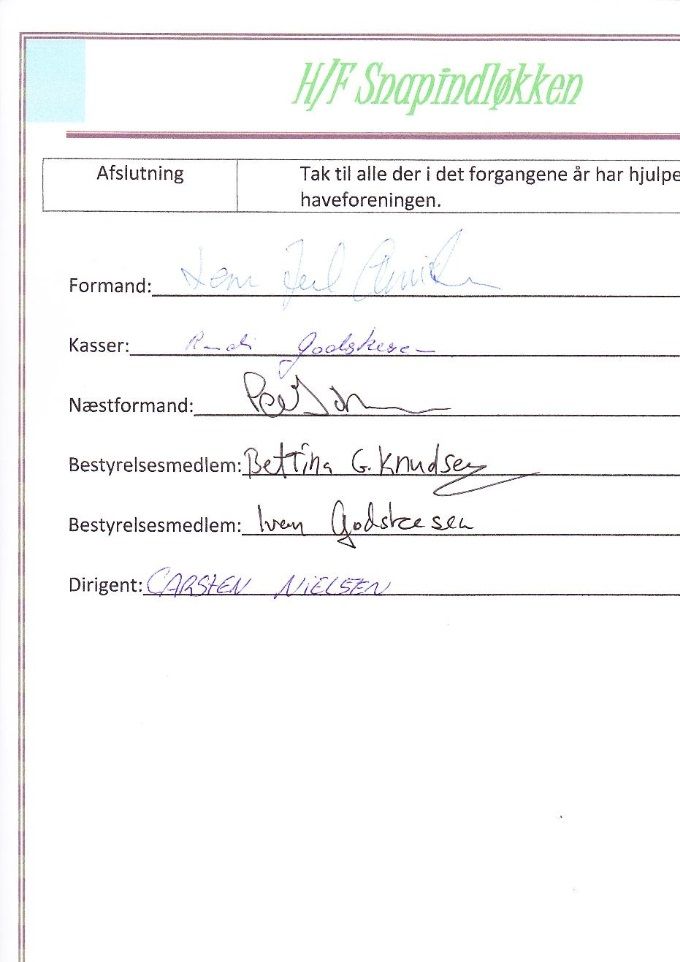 H/F Snapindløkken
Afslutning
Tak til alle der i det forgangene år har hjulpe
haveforeningen.
Formand:
Kasser: Rudi Godskesen
Næstformand:
Bestyrelsesmedlem: Bettina G. Knudsen
Bestyrelsesmedlem: Iven Godskesen
Dirigent: CARSTEN NIELSEN